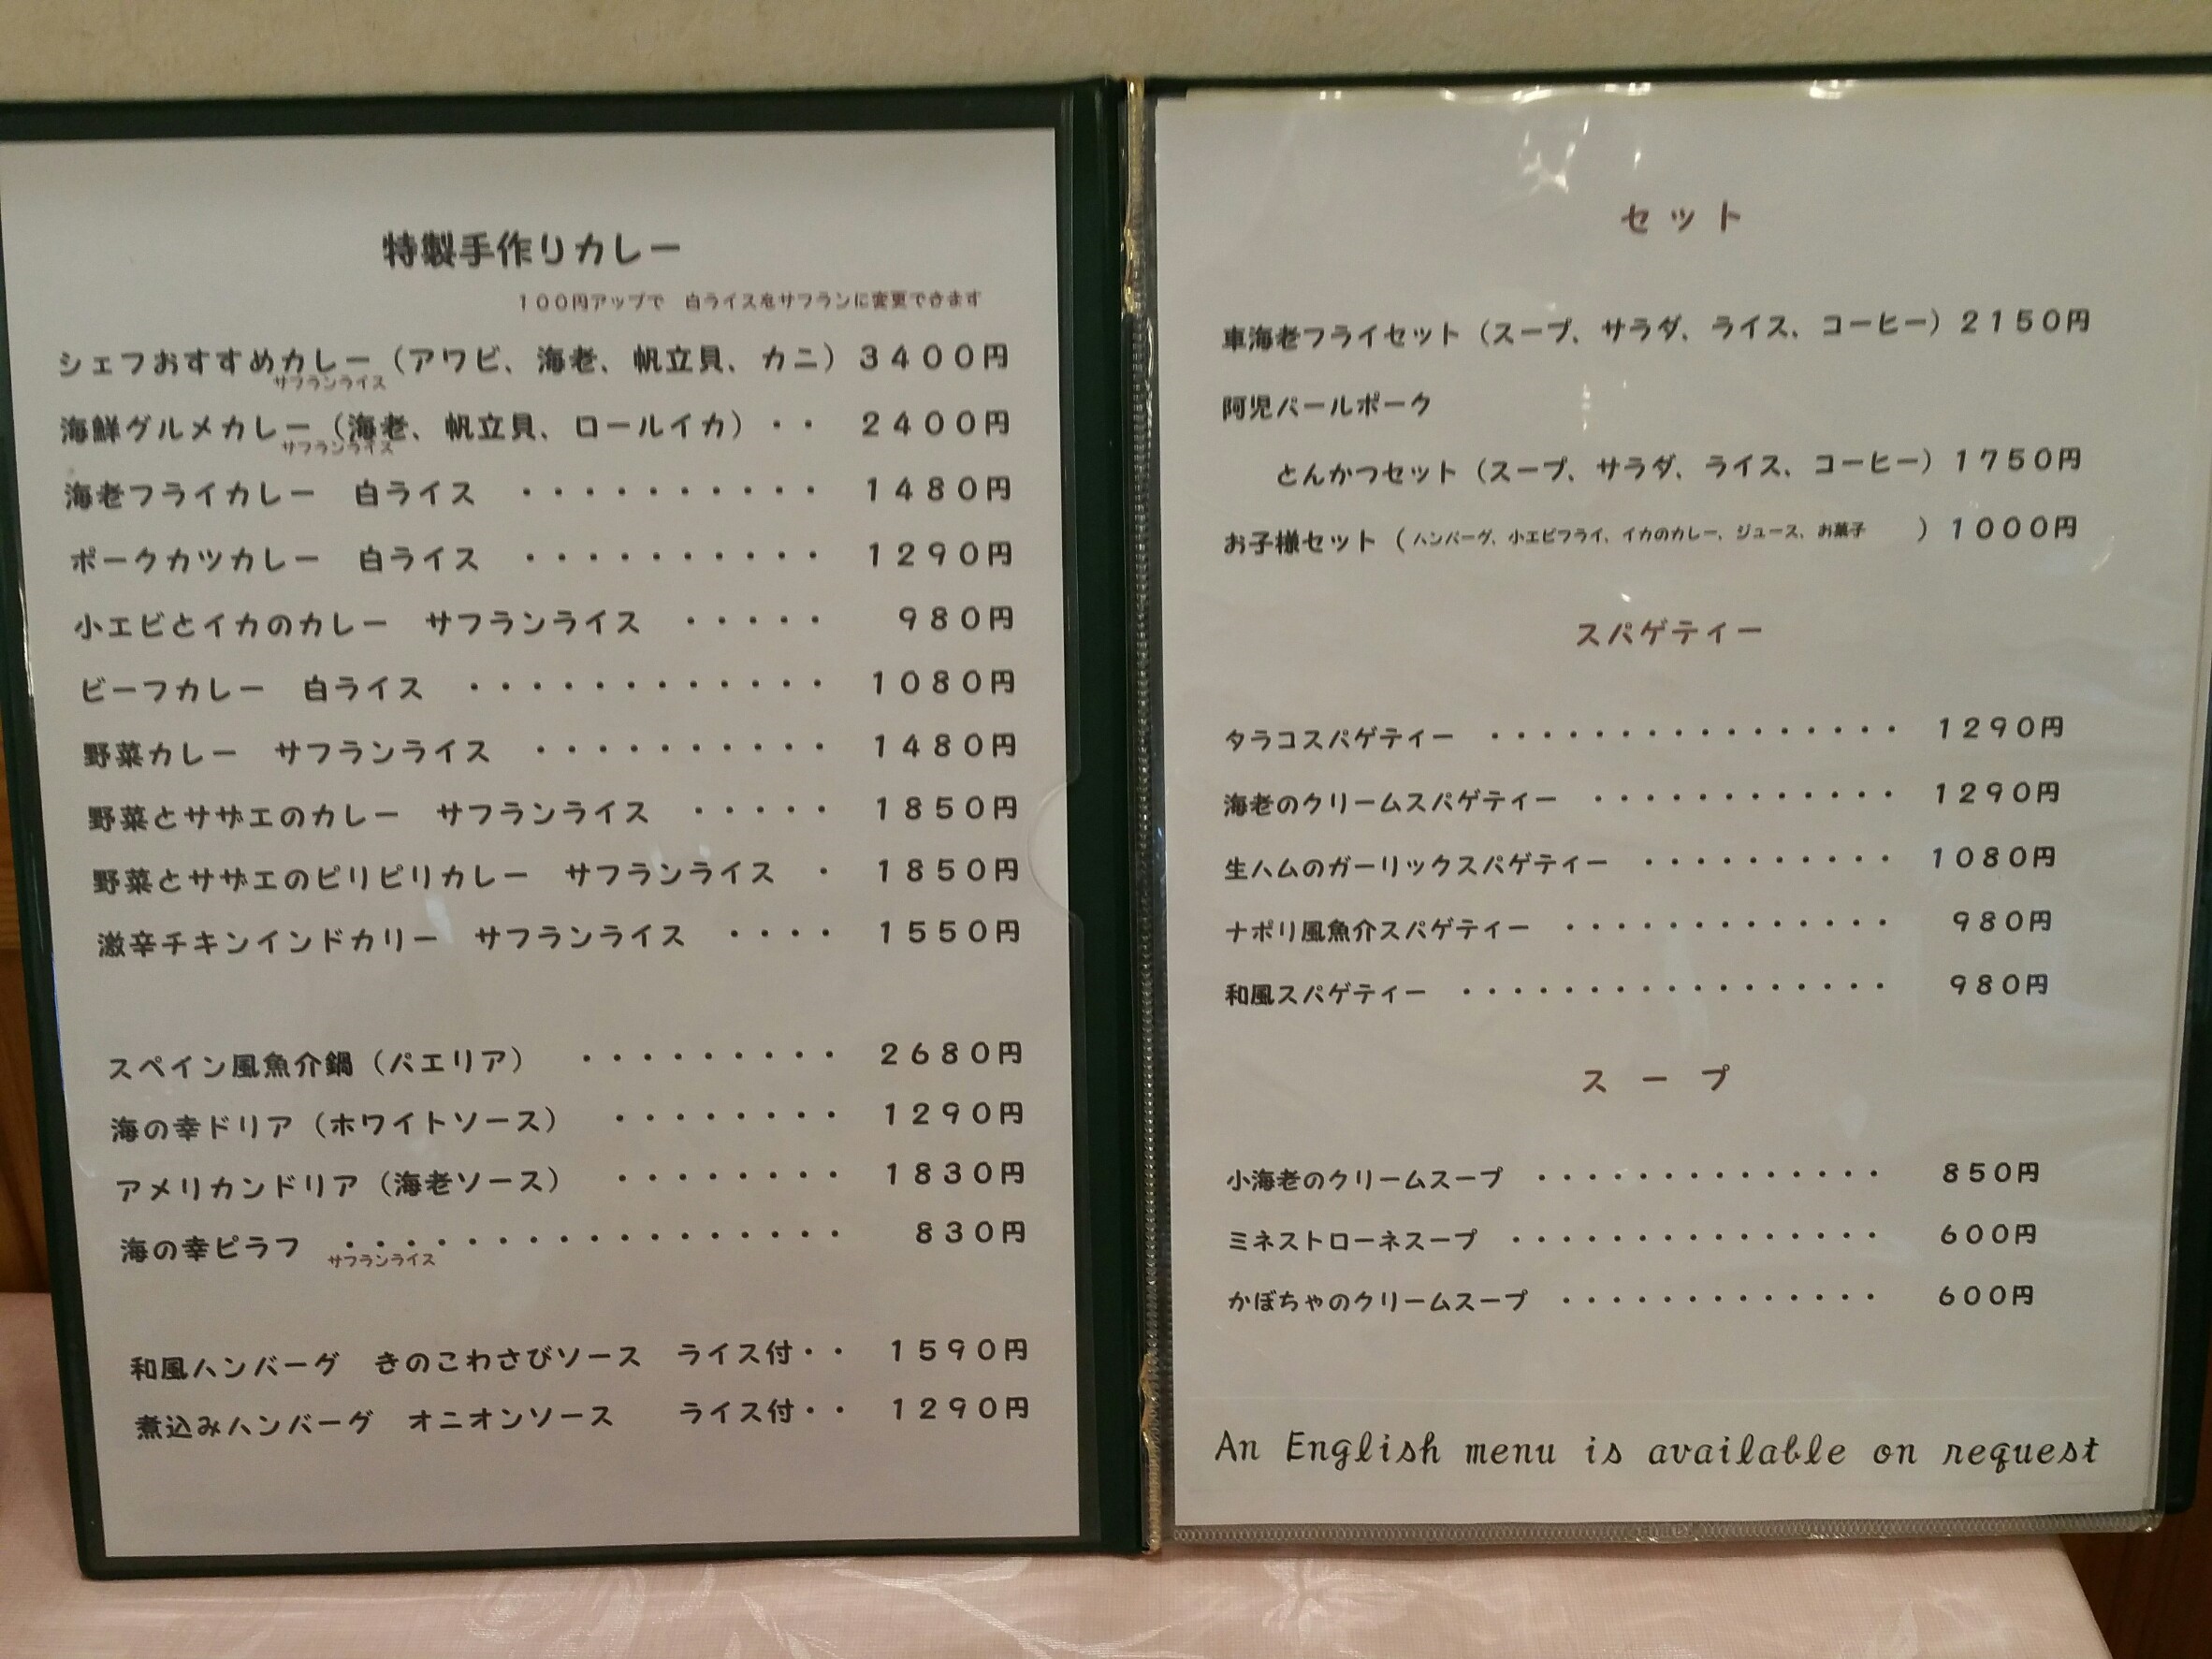 特製手作りカレー
100円アップで　白ライスをサフランに変更できます
シェフおすすめカレー（アワビ、海老、帆立貝、カニ）3400円
サフランライス
海鮮グルメカレー（海老、帆立貝、ロールイカ）・・　2400円
サフランライス
海老フライカレー　白ライス　・・・・・・・・・・　1480円
ポークカツカレー　白ライス　・・・・・・・・・・　1290円
小エビとイカのカレー　サフランライス　・・・・・　980円
ビーフカレー　白ライス　・・・・・・・・・・・・　1080円
野菜カレー　サフランライス　・・・・・・・・・・　1480円
野菜とサザエのカレー　サフランライス　・・・・・　1850円
野菜とサザエのピリピリカレー　サフランライス　・　1850円
激辛チキンインドカリー　サフランライス　・・・・　1550円
スペイン風魚介鍋（パエリア）　・・・・・・・・・　2680円
海の幸ドリア（ホワイトソース）　・・・・・・・・　1290円
アメリカンドリア（海老ソース）　・・・・・・・・　1830円
海の幸ピラフ　・・・・・・・・・・・・・・・・・　830円
サフランライス
和風ハンバーグ　きのこわさびソース　ライス付・・　1590円
煮込みハンバーグ　オニオンソース　　ライス付・・　1290円
セット
車海老フライセット（スープ、サラダ、ライス、コーヒー）2150円
阿児パールポーク
とんかつセット（スープ、サラダ、ライス、コーヒー）1750円
お子様セット（ハンバーグ、小エビフライ、イカのカレー、ジュース、お菓子　）1000円
スパゲティー
タラコスパゲティー　・・・・・・・・・・・・・・・・　1290円
海老のクリームスパゲティー　・・・・・・・・・・・・　1290円
生ハムのガーリックスパゲティー　・・・・・・・・・・　1080円
ナポリ風魚介スパゲティー　・・・・・・・・・・・・・　980円
和風スパゲティー　・・・・・・・・・・・・・・・・・　980円
スープ
小海老のクリームスープ　・・・・・・・・・・・・・・　850円
ミネストローネスープ　・・・・・・・・・・・・・・・　600円
かぼちゃのクリームスープ　・・・・・・・・・・・・・　600円
An English menu is available on request